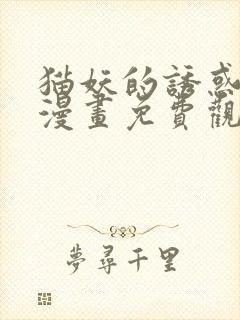 猫妖的誘惑
漫畫免費觀
夢尋千里